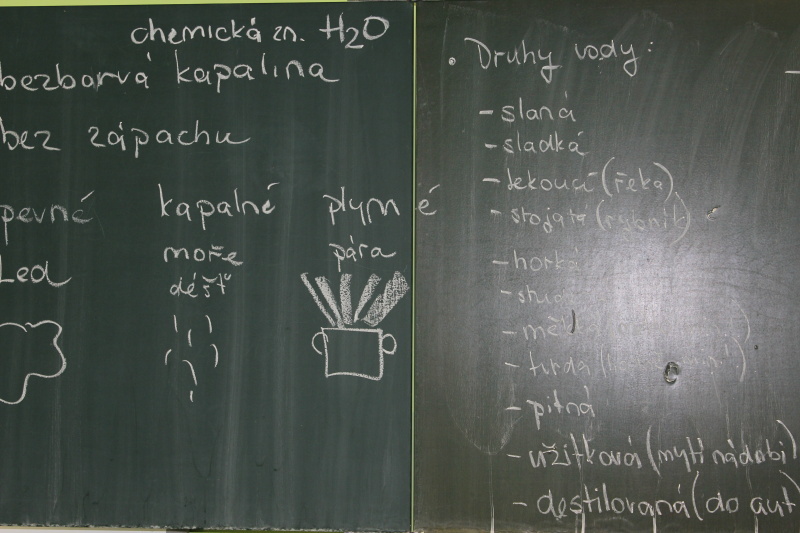 chemická zn. H2O
bezbarvá kapalina
bez zápachu
pevné kapalné plynné
Led moře pára
déšť
• Druhy vody:
- slaná
- sladká
- tekoucí (řeka)
- stojatá (rybník)
- horká
- měk
- tvrdá
- pitná
- užitková (mytí nádobí)
- destilovaná (do aut